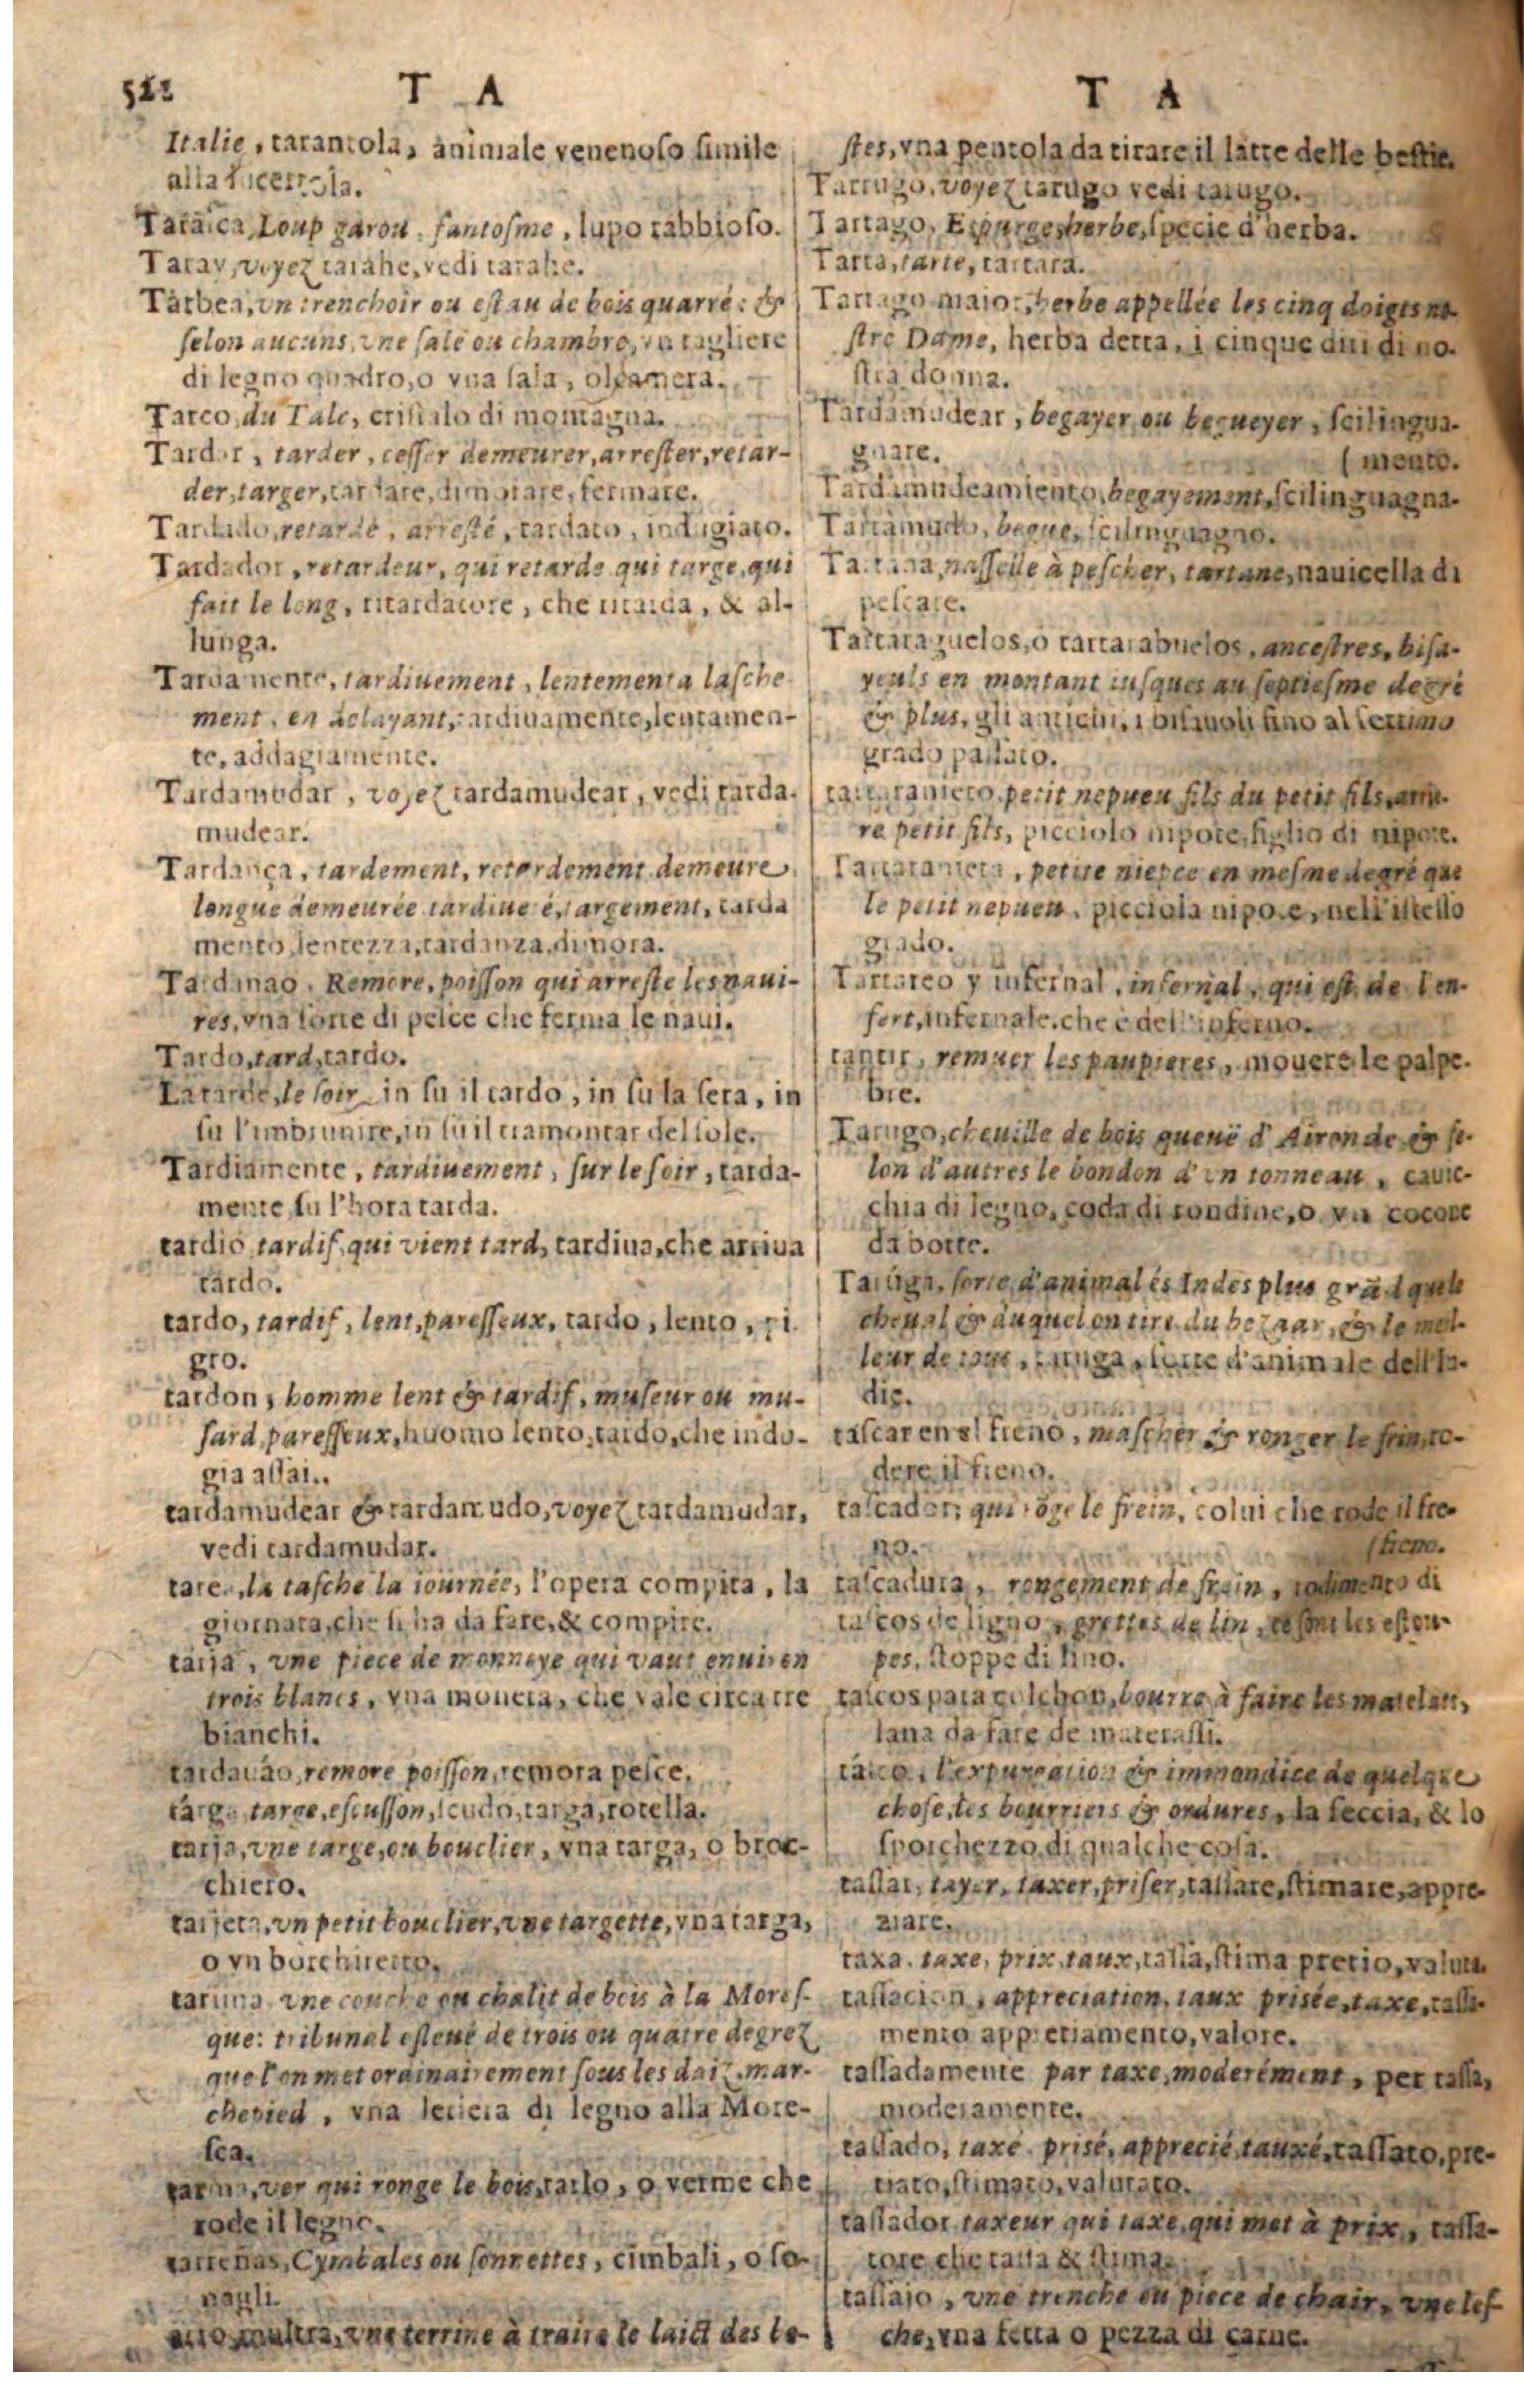 522 T A
Italie, tarantola, animale venenoso simile
alla lucertola.
Tarasca, Loup garou, fantosme, lupo rabbioso.
Taray, voyez tarahe, vedi tarahe.
Tarbea, vn trenchoir ou estau de bois quarré: &
selon aucuns, vne sale ou chambre, vn tagliere
di legno quadro, o vna sala, o camera.
Tarco, du Talc, cristalo di montagna.
Tardar, tarder, cesser demeurer, arrester, retar-
der, targer, tardare, dimorare, fermare.
Tardado, retardé, arresté, tardato, indugiato.
Tardador, retardeur, qui retarde qui targe, qui
fait le long, ritardatore, che ritarda, & al-
lunga.
Tardamente, tardiuement, lentement a lasche
ment, en delayant, tardiuamente, lentamen-
te, addagiamente.
Tardamudar, voyez tardamudear, vedi tarda-
mudear.
Tardança, tardement, retardement demeure
longue demeurée tardiue é, targement, tarda
mento, lentezza, tardanza, dimora.
Tardanao, Remore, poisson qui arreste les naui-
res, vna sorte di pesce che ferma le naui.
Tardo, tard, tardo.
La tarde, le soir, in su il tardo, in su la sera, in
su l'imbrunire, in su il tramontar del sole.
Tardiamente, tardiuement, sur le soir, tarda-
mente, su l'hora tarda.
tardio tardif, qui vient tard, tardiuo, che arriua
tardo.
tardo, tardif, lent, paresseux, tardo, lento, pi
gro.
tardon, homme lent & tardif, museur ou mu-
sard, paresseux, huomo lento, tardo, che indu-
gia assai.
tardamudear & tardamudo, voyez tardamudar,
vedi tardamudar.
tarea, la tasche la iournée, l'opera compita, la
giornata, che si ha da fare, & compire.
tarja, vne piece de monnoye qui vaut enuiron
trois blancs, vna moneta, che vale circa tre
bianchi.
tardauão, remore poisson, remora pesce.
targa targe, escusson, scudo, targa, rotella.
tarja, vne targe, ou bouclier, vna targa, o broc-
chiero.
tarjeta, vn petit bouclier, vne targette, vna targa,
o vn borchiretto.
tarima, vne couche ou chalit de bois à la Mores-
que: tribunal esleué de trois ou quatre degrez
que l'on met ordinairement sous les daiz, mar-
chepied, vna letiera di legno alla More-
sca.
tarma, ver qui ronge le bois, tarlo, o verme che
rode il legno.
tarreñas, Cymbales ou sonnettes, cimbali, o so-
nagli.
vne terrine à traire le laict des be-
T A
stes, vna pentola da tirare il latte delle bestie.
Tarrugo, voyez tarugo vedi tarugo.
Tartago, Espurge, herbe, specie d'herba.
Tarta, tarte, tartara.
Tartago maior, herbe appellée les cinq doigts no-
stre Dame, herba detta, i cinque diti di no-
stra donna.
Tardamudear, begayer ou begueyer, scilingua-
gnare. (mento.
Tardamudeamiento, begayement, scilinguagna-
Tartamudo, begue, scilinguagno.
Tartana, nasselle à pescher, tartane, nauicella di
pescare.
Tartaraguelos, o tartarabuelos, ancestres, bisa-
yeuls en montant iusques au septiesme degré
& plus, gli antichi, i bisauoli fino al settimo
grado passato.
tartaranieto, petit nepueu fils du petit fils, arrie-
re petit fils, picciolo nipote, figlio di nipote.
Tartaranieta, petite niepce en mesme degré que
le petit nepueu, picciola nipote, nell'istesso
grado.
Tartareo y infernal, infernal, qui est de l'en-
fert, infernale. che è dell'inferno.
remuer les paupieres, mouere le palpe-
bre.
Tarugo, cheuille de bois queuë d'Aironde & se-
lon d'autres le bondon d'vn tonneau, cauic-
chia di legno, coda di rondine, o vn cocore
da botte.
Taruga, sorte d'animal és Indes plus grãd que le
cheual & duquel on tire du bezaar, & le meil-
leur de tous, taruga, sorte d'animale dell'In-
die.
tascar en el freno, mascher & ronger le frein, ro-
dere il freno.
tascador, qui rõge le frein, colui che rode il fre-
no. (freno.
tascadura, rongement de frein, rodimento di
tascos de ligno, grettes de lin, ce sont les estou-
pes, stoppe di lino.
tascos para colchon, bourre à faire les matelats,
lana da fare de materassi.
tasco, l'expurgation & immondice de quelque
chose, les bourriers & ordures, la feccia, & lo
sporchezzo di qualche cosa.
tassar, tayer, taxer, priser, tassare, stimare, appre-
ziare.
taxa, taxe, prix, taux, tassa, stima pretio, valuta.
tassacion, appreciation, taux prisée, taxe, tassa-
mento appretiamento, valore.
tassadamente par taxe, moderément, per tassa,
moderamente.
tassado, taxé prisé, apprecié, tauxé, tassato, pre-
tiato, stimato, valutato.
tassador taxeur qui taxe, qui met à prix, tassa-
tore che tassa & stima.
tassajo, vne trenche ou piece de chair, vne les-
che, vna fetta o pezza di carne.